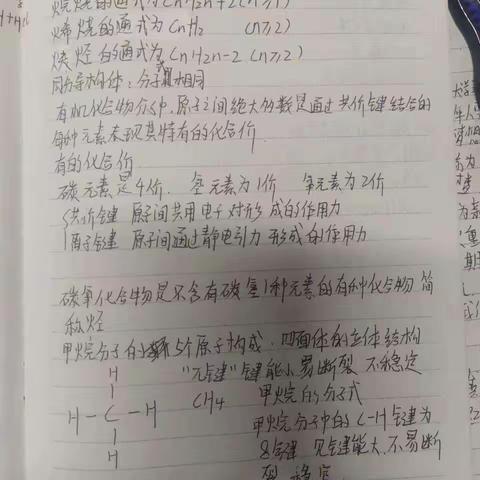 烷烧的通式为CnH2n+2(n≥1)
烯烧的通式为CnH2 (n≥2)
炔烃的通式为CnH2n-2 (n≥2)
同分异构体:分子式相同
有机化合物分子中,原子之间绝大多数是通过共价键结合的
每种元素表现其特有的化合价
有的化合价
碳元素是4价. 氢元素为1价 氧元素为2价
共价键 原子间共用电子对形成的作用力
离子键 原子间通过静电引力形成的作用力
碳氢化合物是只含有碳氢2种元素的有机化合物 简
称烃
甲烷分子的 5个原子构成.四面体的立体结构
H "π键"键能小易断裂 不稳定
CH4 甲烷的分子式
H-C-H 甲烷分子中的C-H键为
H δ键 键能大.不易断
裂 稳定